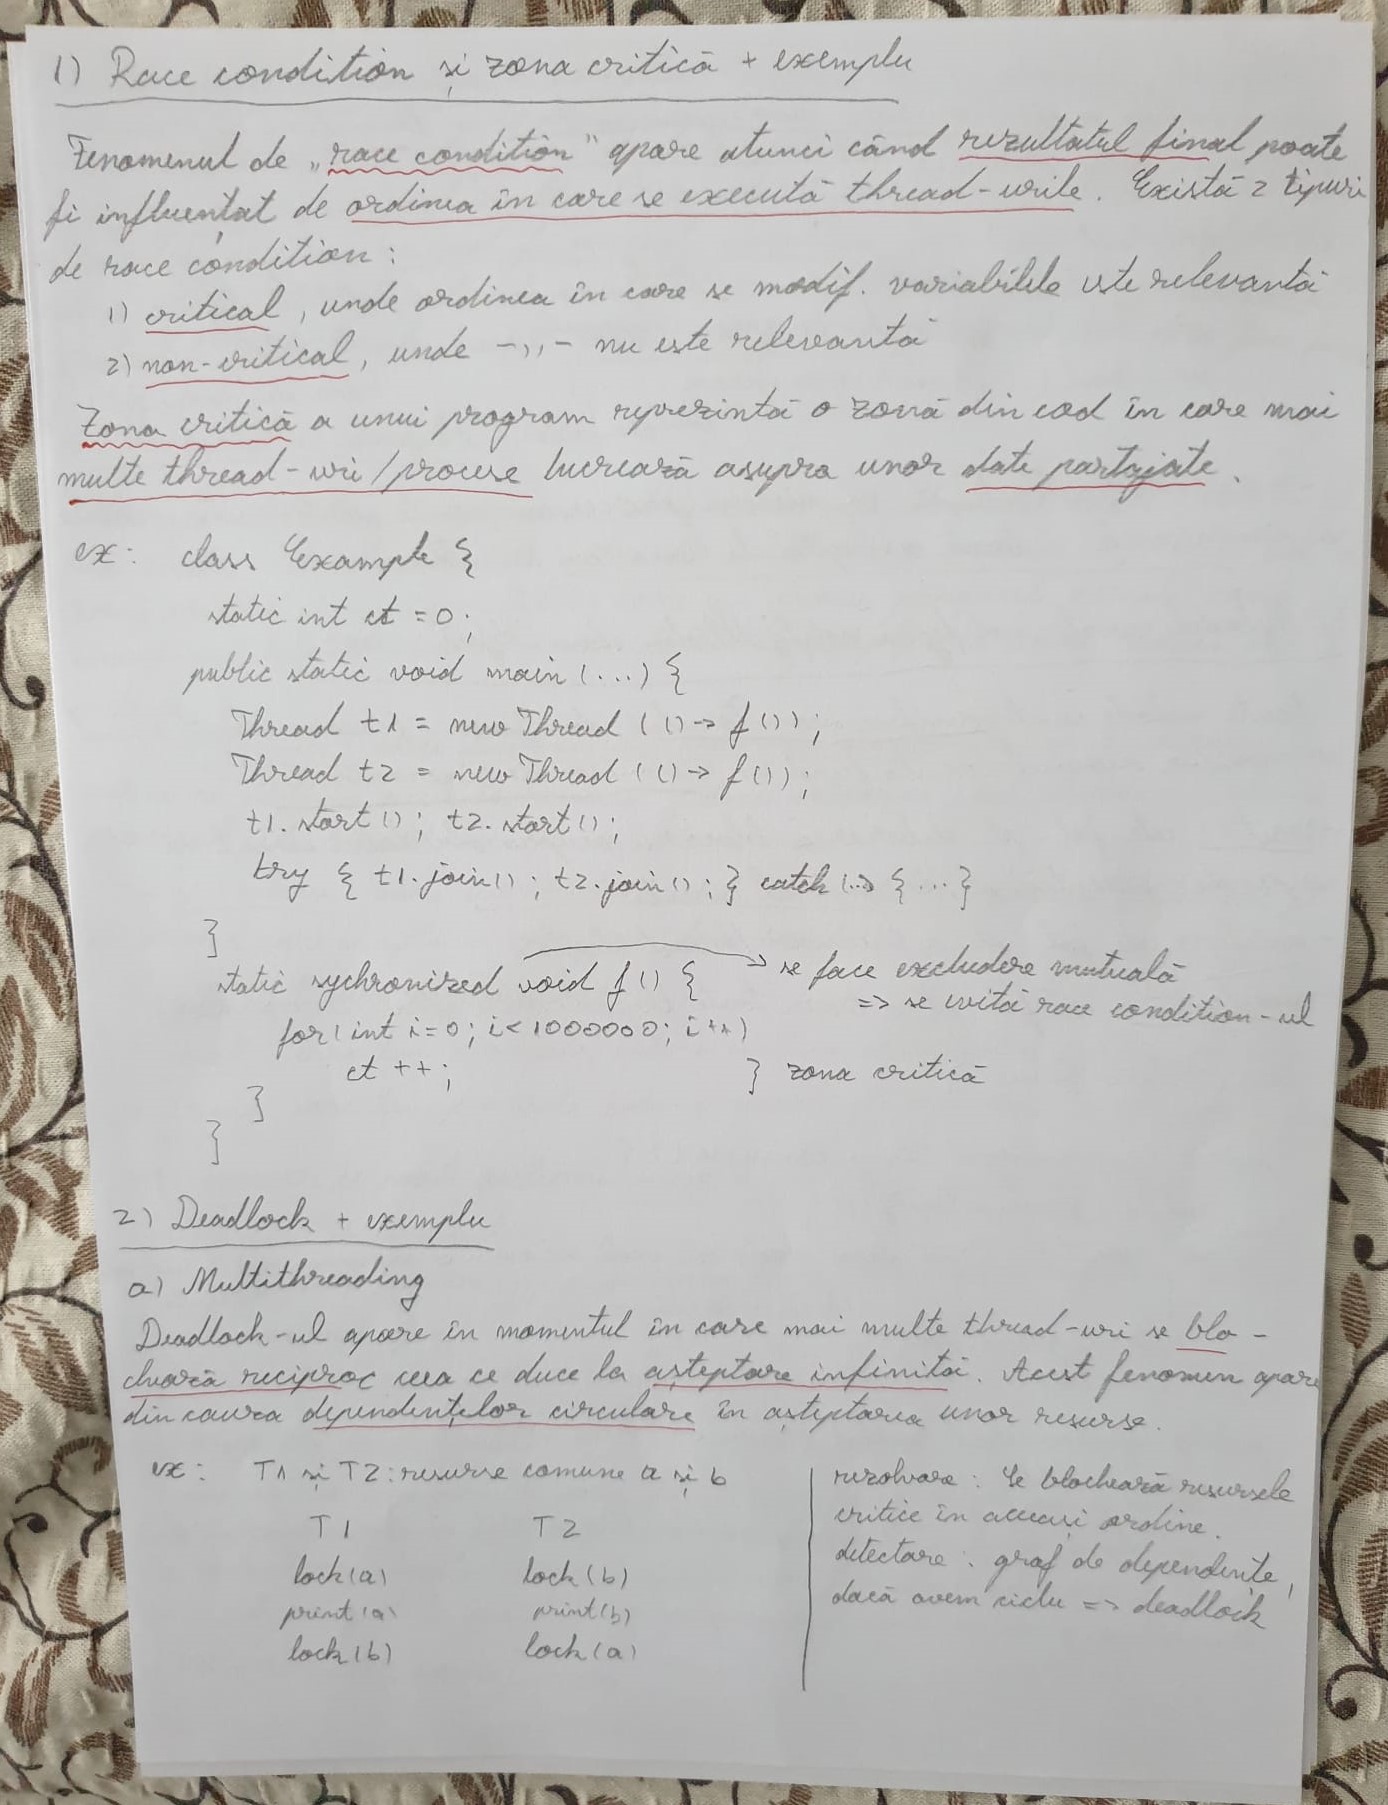 1) Race condition și zona critică + exemplu
Fenomenul de „race condition" apare atunci când rezultatul final poate
fi influențat de ordinea în care se execută thread-urile. Există 2 tipuri
de race condition:
1) critical, unde ordinea în care se modif. variabilele este relevantă
2) non-critical, unde -,,- nu este relevantă
Zona critică a unui program reprezintă o zonă din cod în care mai
multe thread-uri/procese lucrează asupra unor date partajate.
ex: class Example {
static int ct = 0;
public static void main (...) {
Thread t1 = new Thread (() -> f());
Thread t2 = new Thread (() -> f());
t1.start(); t2.start();
try { t1.join(); t2.join(); } catch (...) {...}
}
static sychronized void f() { -> se face excludere mutuală
=> se evită race condition-ul
for(int i=0; i<1000000; i++)
ct ++; } zona critică
}
}
2) Deadlock + exemplu
a) Multithreading
Deadlock-ul apare în momentul în care mai multe thread-uri se blo-
chează reciproc ceea ce duce la așteptare infinită. Acest fenomen apare
din cauza dependențelor circulare în așteptarea unor resurse.
ex: T1 și T2: resurse comune a și b
T1 T2
lock(a) lock(b)
print(a) print(b)
lock(b) lock(a)
rezolvare: Se blochează resursele
critice în aceeași ordine.
detectare: graf de dependențe,
dacă avem ciclu => deadlock